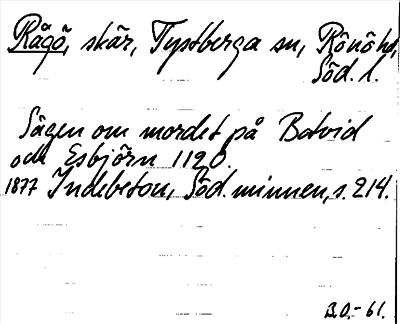 Rågö, skär, Tystberga sn, Rönöhd,
Söd. l.
Sägen om mordet på Botvid
och Esbjörn 1120.
1877 Indebetou, Söd. minnen, s. 214.
B.O.-61.